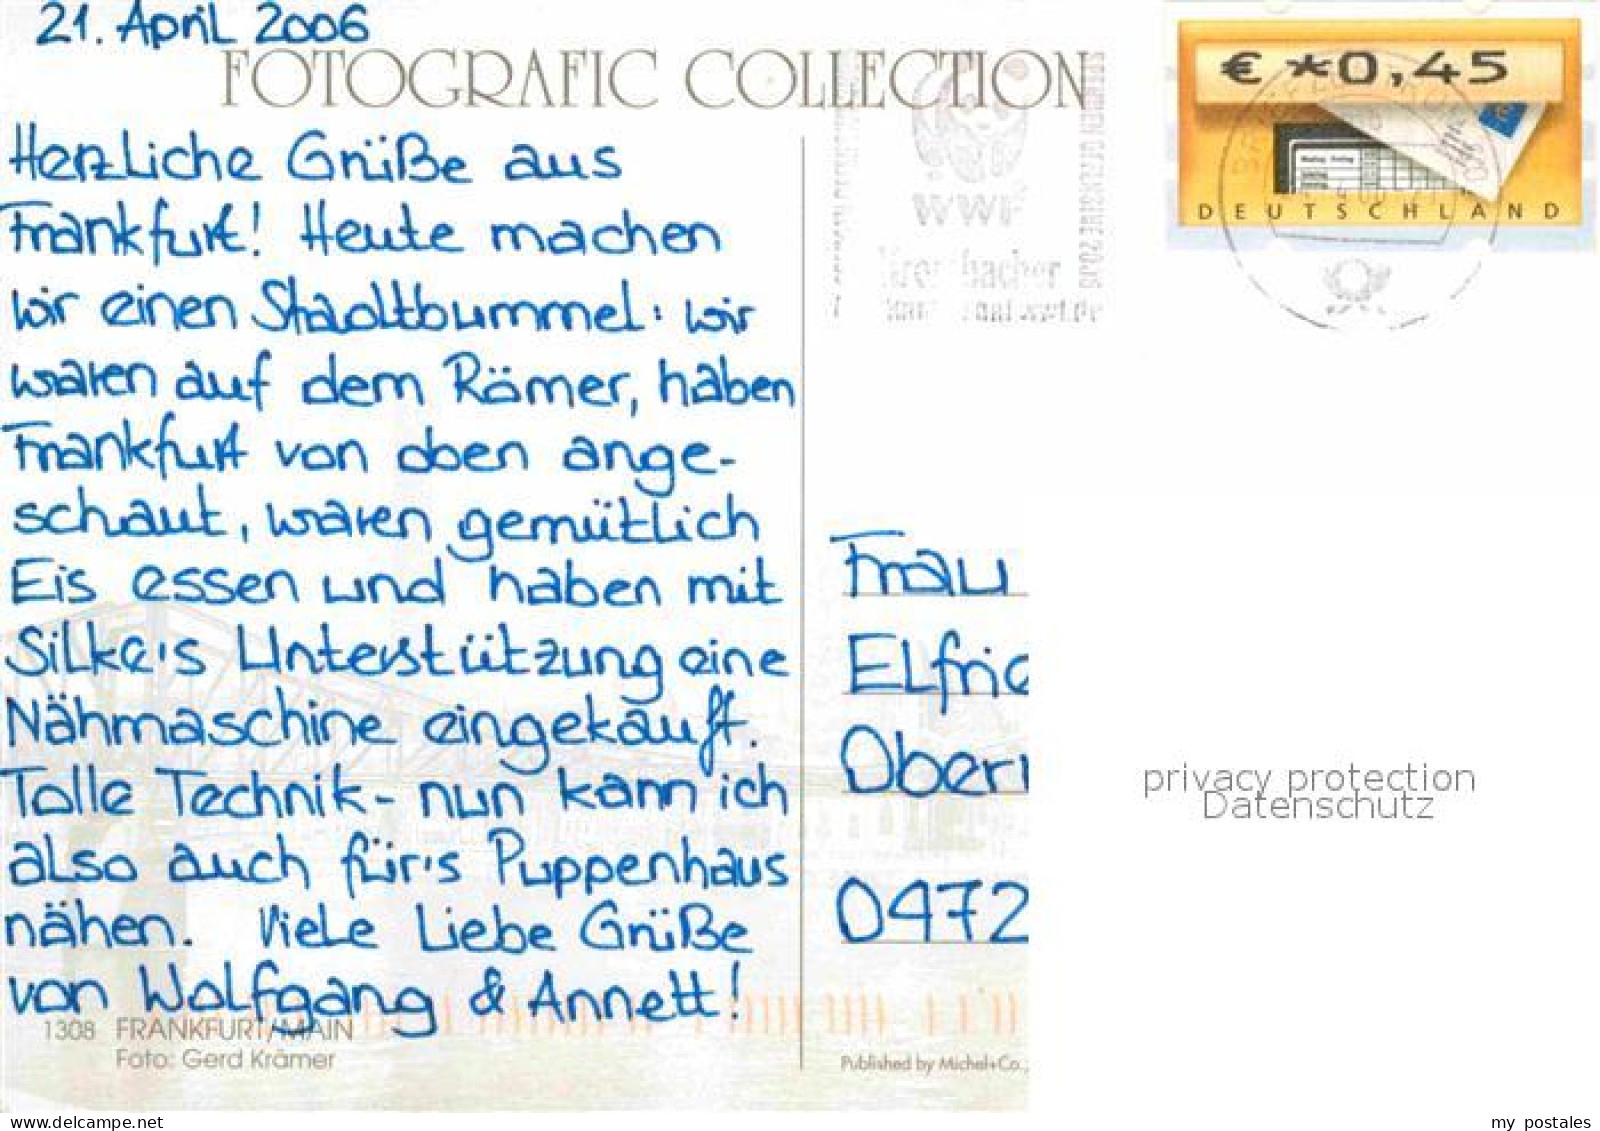 21. April 2006
FOTOGRAFIC COLLECTION
Herzliche Grüße aus
Frankfurt! Heute machen
wir einen Stadtbummel: wir
waren auf dem Römer, haben
Frankfurt von oben ange-
schaut, waren gemütlich
Eis essen und haben mit
Silke's Unterstützung eine
Nähmaschine eingekauft.
Tolle Technik - nun kann ich
also auch für's Puppenhaus
nähen. Viele Liebe Grüße
von Wolfgang & Annett!
1308 FRANKFURT/MAIN
Foto: Gerd Krämer
€ *0,45
DEUTSCHLAND
WWF
Frau
Elfrie
Ober
0472
Published by Michel+Co.
privacy protection
Datenschutz
www.delcampe.net
my_postales